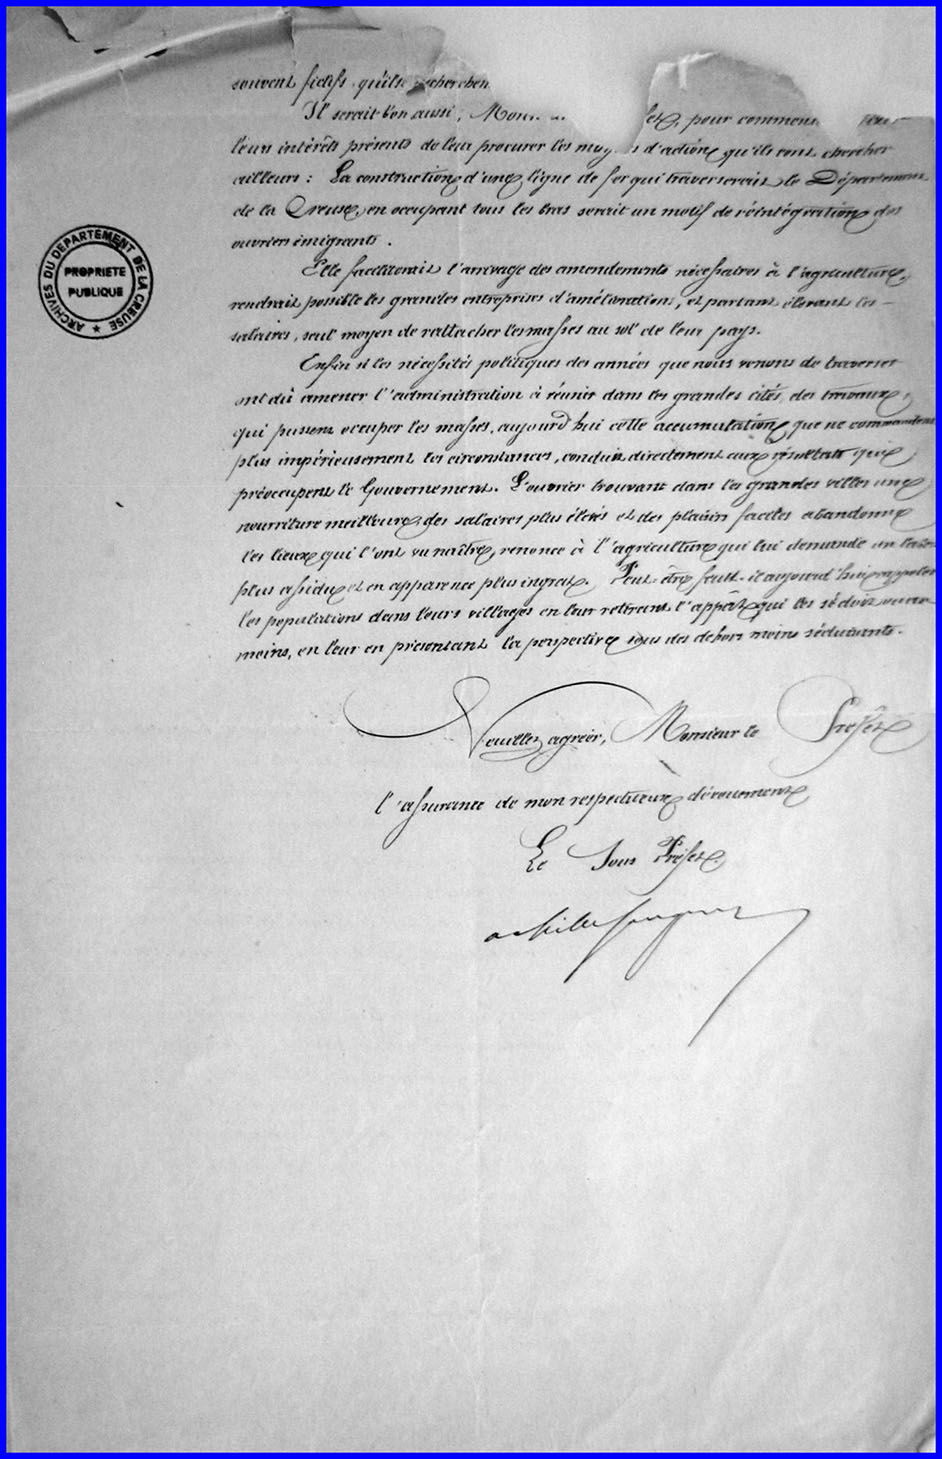 souvent fictifs qu'ils recherchen
Il serait bon aussi, Mon fet, pour commen
leurs intérêts présents de leur procurer les moy s d'action qu'ils vont chercher
ailleurs : La construction d'une ligne de fer qui traverserait le Département
de la Creuse, en occupant tous les bras serait un motif de réintégration des
ouvriers émigrants.
Elle faciliterait l'arrivage des amendements nécessaires à l'agriculture,
rendrait possible les grandes entreprises d'amélioration, et partant élevant les
salaires, seul moyen de rattacher les masses au sol de leur pays.
Enfin si les nécessités politiques des années que nous venons de traverser
ont dû amener l'administration à réunir dans les grandes cités, des travaux,
qui pussent occuper les masses, aujourd'hui cette accumulation, que ne commandent
plus impérieusement les circonstances, conduit directement aux résultats qui
préoccupent le Gouvernement. L'ouvrier trouvant dans les grandes villes une
nourriture meilleure, des salaires plus élevés et des plaisirs faciles abandonne
les lieux qui l'ont vu naître, renonce à l'agriculture qui lui demande un labeur
plus assidu et en apparence plus ingrat. Peut-être faut-il aujourd'hui rappeler
les populations dans leurs villages en leur retirant l'appât qui les séduit ou au
moins, en leur en présentant la perspective sous des dehors moins séduisants.
Veuillez agréer, Monsieur le Préfet
l'assurance de mon respectueux dévouement
Le Sous Préfet
ARCHIVES DU DÉPARTEMENT DE LA CREUSE
PROPRIETE
PUBLIQUE